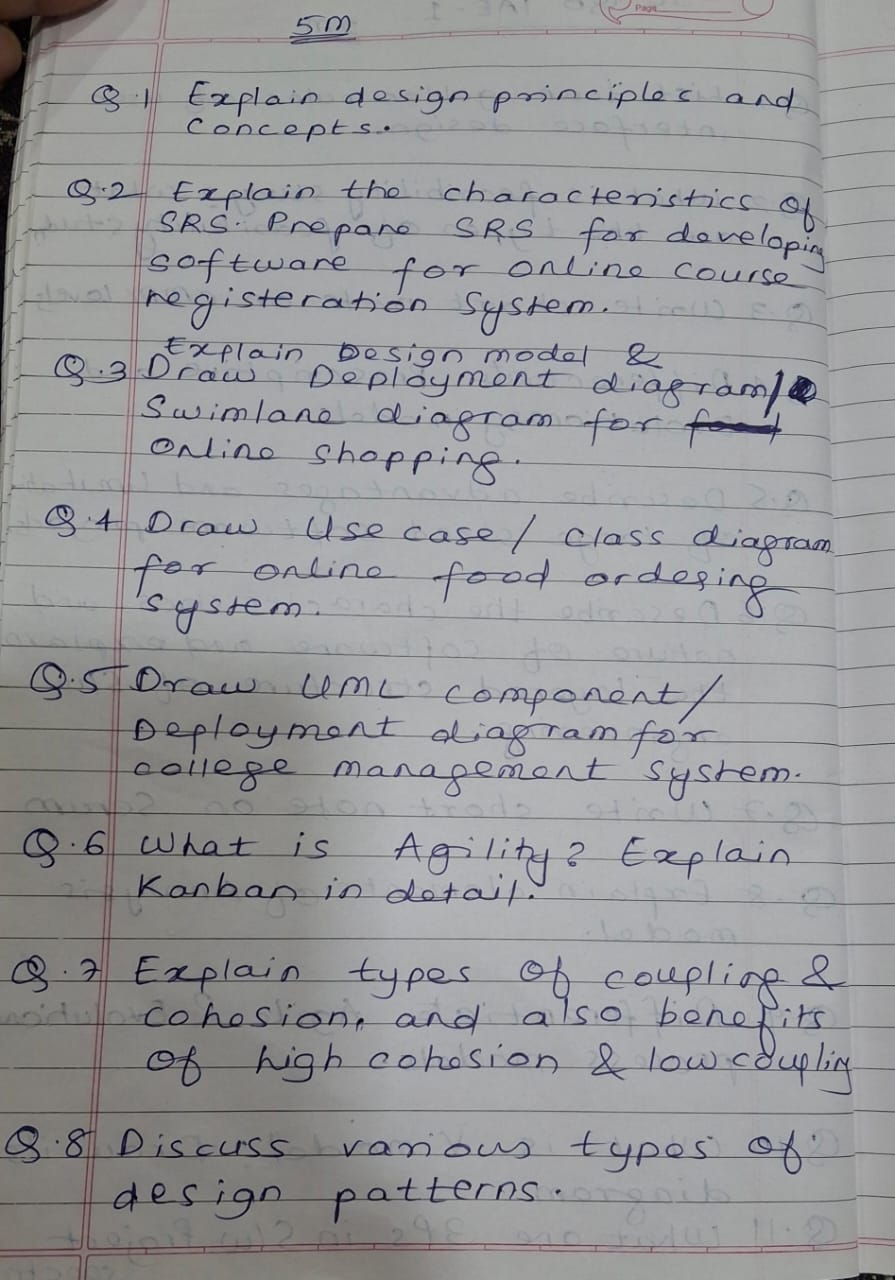 Page
5M
Q.1 Explain design principles and
concepts.
Q.2 Explain the characteristics of
SRS. Prepare SRS for developing
software for online course
registeration system.
Explain Design model &
Q.3 Draw Deployment diagram/
Swimlane diagram for
online shopping.
Q.4 Draw Use case / Class diagram
for online food ordering
system.
Q.5 Draw UML component/
Deployment diagram for
college management system.
Q.6 What is Agility? Explain
Kanban in detail.
Q.7 Explain types of coupling &
cohesion, and also benefits
of high cohesion & low coupling
Q.8 Discuss various types of
design patterns.